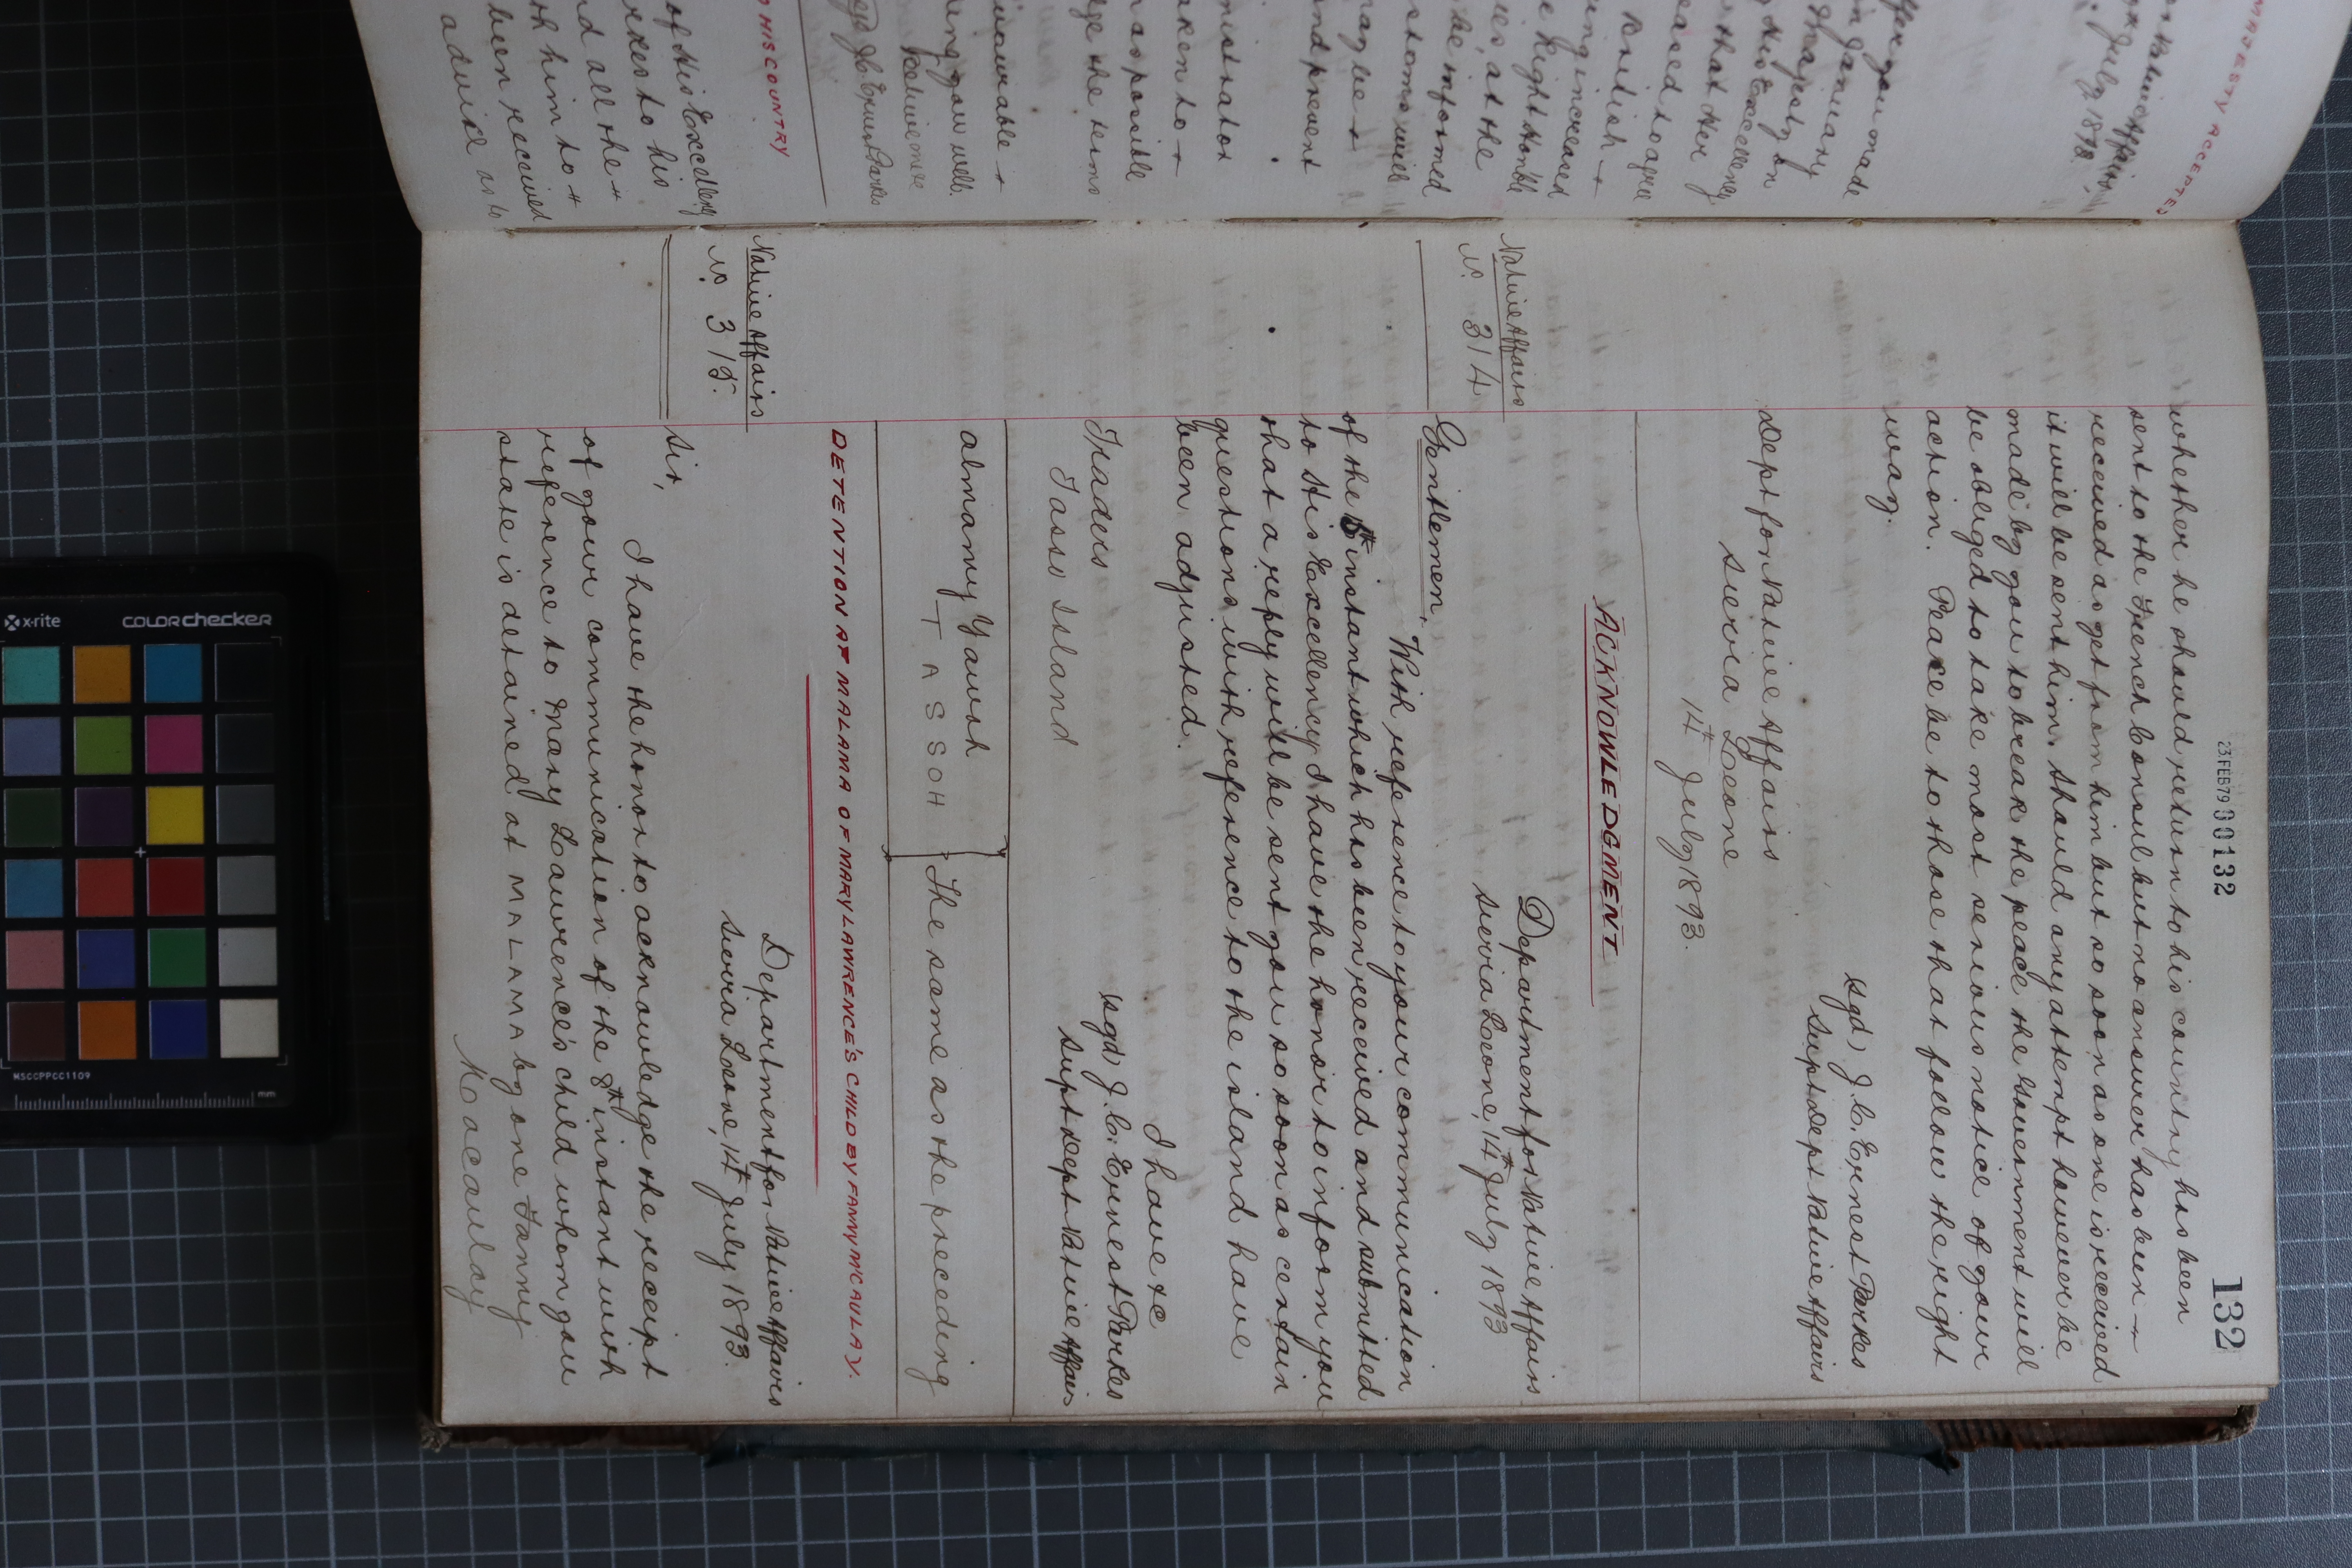 23 FEB 79 000132
132
whether he should return to his country has been
sent to the French Consul but no answer has been
received as yet from him but so soon as one is received
it will be sent him. Should any attempt however be
made by you to break the peace the Government will
be obliged to take most serious notice of your
action. Peace be to those that follow the right
way.
sgd) J. C. Ernest Parkes
Supt Dept Native Affairs
Dept for Native Affairs
Sierra Leone
14th July 1893.
ACKNOWLEDGMENT
Native Affairs
No. 314
Department for Native Affairs
Sierra Leone, 14th July 1893
Gentlemen,
With reference to your communication
of the 5th instant which has been received and submitted
to His Excellency I have the honor to inform you
that a reply will be sent you so soon as certain
questions with reference to the island have
been adjusted.
I have &c
sgd) J. C. Ernest Parkes
Supt Dept Native Affairs
Traders
Tasso Island
almamy Yawah
TASSOH
The same as the preceding
DETENTION AT MALAMA OF MARY LAWRENCE'S CHILD BY FANNY McCAULAY.
Native Affairs
No. 315.
Department for Native Affairs
Sierra Leone, 14th July 1893.
Sir,
I have the honor to acknowledge the receipt
of your communication of the 8th instant with
reference to Mary Lawrence's child whom you
state is detained at MALAMA by one Fanny
Macaulay
MAJESTY ACCEPTED
July 1893.
you made
January
Majesty on
His Excellency
that Her
eased to agree
British
ing increased
e Right Honble
at the
be informed
stoms will
may be
and prevent
nistrator
aken to
as possible
ge the terms
ing you well.
J. C. Ernest Parkes
HIS COUNTRY
of His Excellency
rkes to his
nd all the
th him to
been received
advise as to
x-rite
colorchecker
MSCCPPCC1109
mm